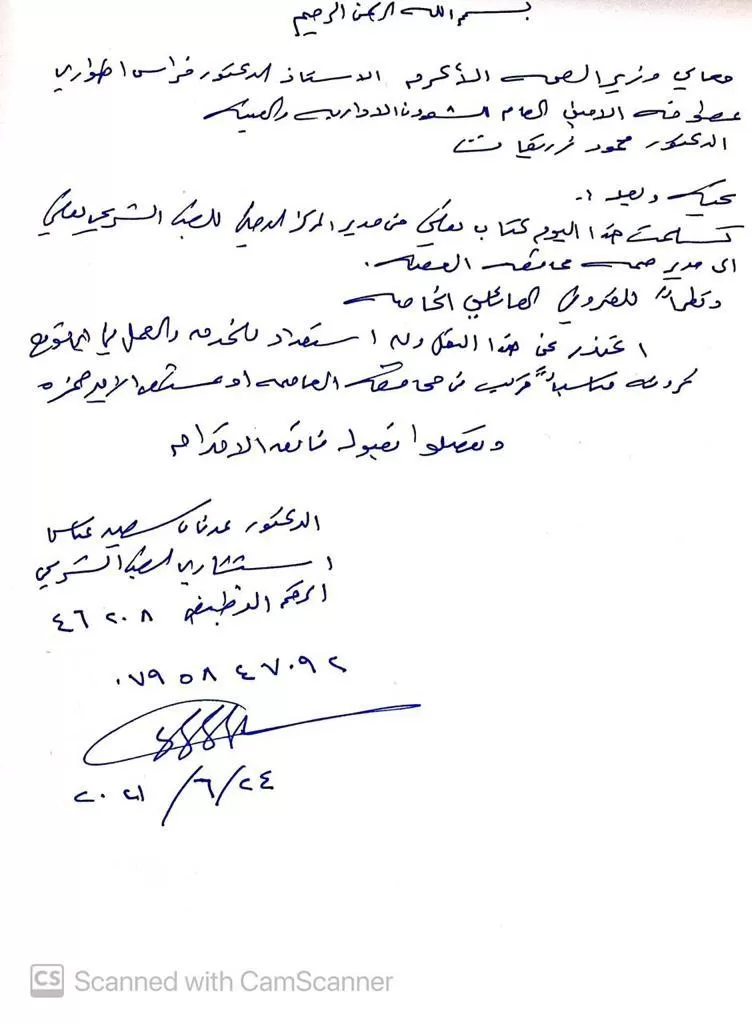 بسم الله الرحمن الرحيم
معالي وزير الصحة الأكرم الاستاذ الدكتور فراس الهواري
عطوفة الامين العام للشؤون الادارية والفنية
الدكتور محمود زريقات
تحية وبعد :-
تسلمت هذا اليوم كتاب نقلي من مدير المركز الوطني للطب الشرعي نقلي
الى مدير صحة محافظة العقبة.
ونظراً للظروف العائلي الخاصة
اعتذر عن هذا النقل وله استعداد للخدمة والعمل في اي موقع
ترونه مناسباً قريب من محافظة العاصمة او مستشفى الامير حمزه
وتفضلوا بقبول فائق الاحترام
الدكتور عدنان سعيد عباس
استشاري الطب الشرعي
الرقم الوظيفي ٤٦٢٠٨
٠٧٩٥٨٤٧٠٩٢
٢٠٢١/٦/٢٤
CS Scanned with CamScanner